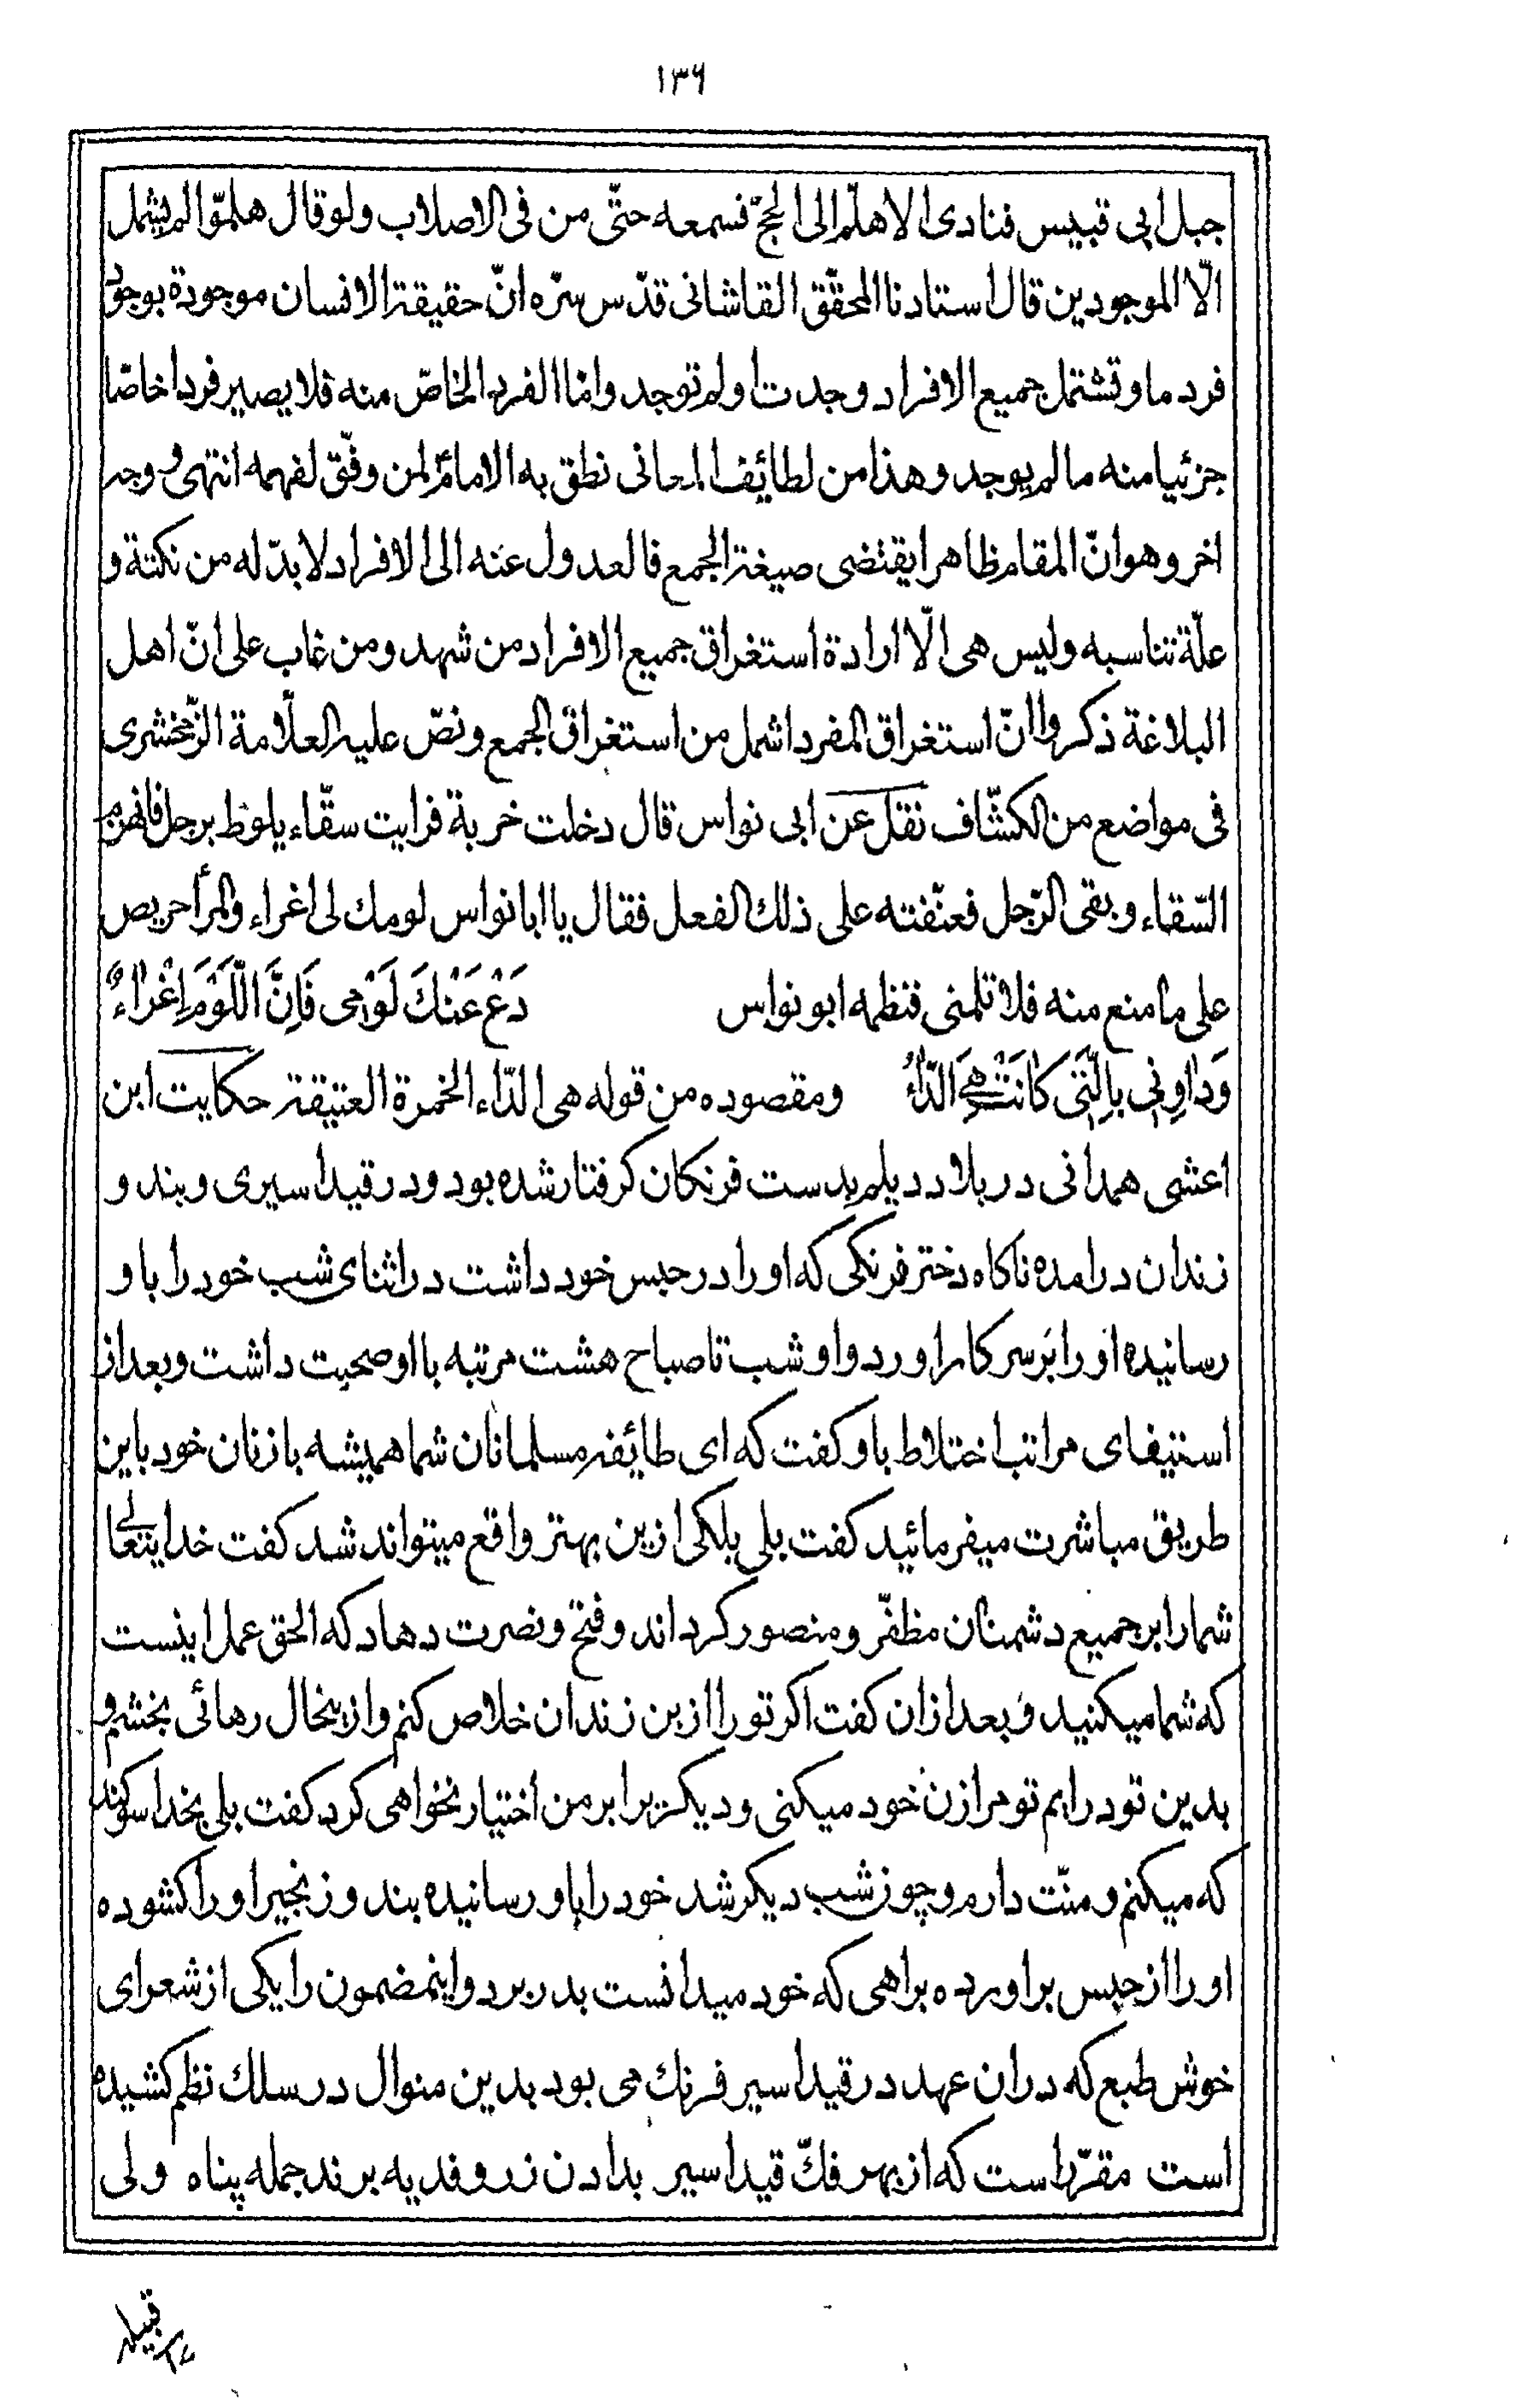 ۱۳۶
جبل ابی قبیس فنادی الا هلمّ الی الحجّ فسمعه حتّی من فی الاصلاب ولو قال هلمّوا لم یشمل
الّا الموجودین قال استادنا المحقّق القاشانی قدّس سرّه انّ حقیقة الانسان موجودة بوجود
فرد ما و تشتمل جمیع الافراد وجدت او لم توجد و امّا الفرد الخاصّ منه فلا یصیر فردا خاصّا
جزئیا منه ما لم یوجد و هذا من لطائف المعانی نطق به الامامؑ لمن وفّق لفهمه انتهی و وجه
اخر و هو انّ المقام ظاهرا یقتضی صیغة الجمع فالعدول عنه الی الافراد لا بدّ له من نکتة و
علّة تناسبه و لیس هی الّا ارادة استغراق جمیع الافراد من شهد و من غاب علی انّ اهل
البلاغة ذکروا انّ استغراق المفرد اشمل من استغراق الجمع و نصّ علیه العلّامة الزّمخشری
فی مواضع من الکشّاف نقل عن ابی نواس قال دخلت خربة فرایت سقّاء یلوط برجل فانهزم
السّقاء و بقی الرّجل فعنّفته علی ذلك الفعل فقال یا ابا نواس لومك لی اغراء والمرأ حریص
علی ما منع منه فلا تلمنی فنظمه ابو نواس دَعْ عَنْكَ لَوْمی فَاِنَّ اللَّوْمَ اِغْرٰاءٌ
وَدٰاوِنی بِالَّتی کٰانَتْ هِیَ الدّٰاءُ و مقصوده من قوله هی الدّاء الخمرة العتیقة حکایت ابن
اعشی همدانی در بلاد دیلم بدست فرنکان کرفتار شده بود و در قید اسیری و بند و
زندان درامده ناکاه دختر فرنکی که او را در حبس خود داشت در اثنای شب خود را باو
رسانیده او را بر سر کار اورد و او شب تا صباح هشت مرتبه با او صحبت داشت و بعد از
استیفای مراتب اختلاط باو کفت که ای طایفه مسلمانان شما همیشه با زنان خود باین
طریق مباشرت میفرمائید کفت بلی بلکی ازین بهتر واقع میتواند شد کفت خدایتعالی
شما را بر جمیع دشمنان مظفّر و منصور کرداند و فتح و نصرت دهاد که الحق عمل اینست
که شما میکنید و بعد ازان کفت اکر تو را ازین زندان خلاص کنم و ازینحال رهائی بخشم و
بدین تو درایم تو مرا زن خود میکنی و دیکری برابر من اختیار نخواهی کرد کفت بلی بخدا سوکند
که میکنم و منّت دارم و چون شب دیکر شد خود را باو رسانیده بند و زنجیر او را کشوده
او را از حبس براورده براهی که خود میدانست بدر برد و اینمضمون را یکی از شعرای
خوش طبع که دران عهد در قید اسیر فرنك می بود بدین منوال در سلك نظم کشیده
است مقرّر است که از بهر فكّ قید اسیر بدادن زر و فدیه برند جمله پناه ولی
قبیله